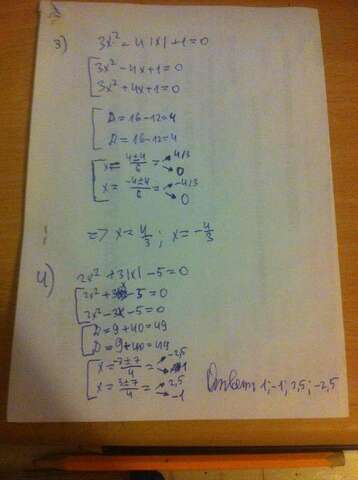 3) 3x² - 4|x| + 1 = 0
[ 3x² - 4x + 1 = 0
3x² + 4x + 1 = 0
[ D = 16 - 12 = 4
D = 16 - 12 = 4
[ x = 4±4/6 = → 4/3 → 0
x = -4±4/6 = → -4/3 → 0
=> x = 4/3 ; x = -4/3
4) 2x² + 3|x| - 5 = 0
[ 2x² + 3x - 5 = 0
2x² - 3x - 5 = 0
[ D = 9 + 40 = 49
D = 9 + 40 = 49
[ x = -3±7/4 = → -2,5 → 1
x = 3±7/4 = → 2,5 → -1
Ответ: 1; -1; 2,5; -2,5